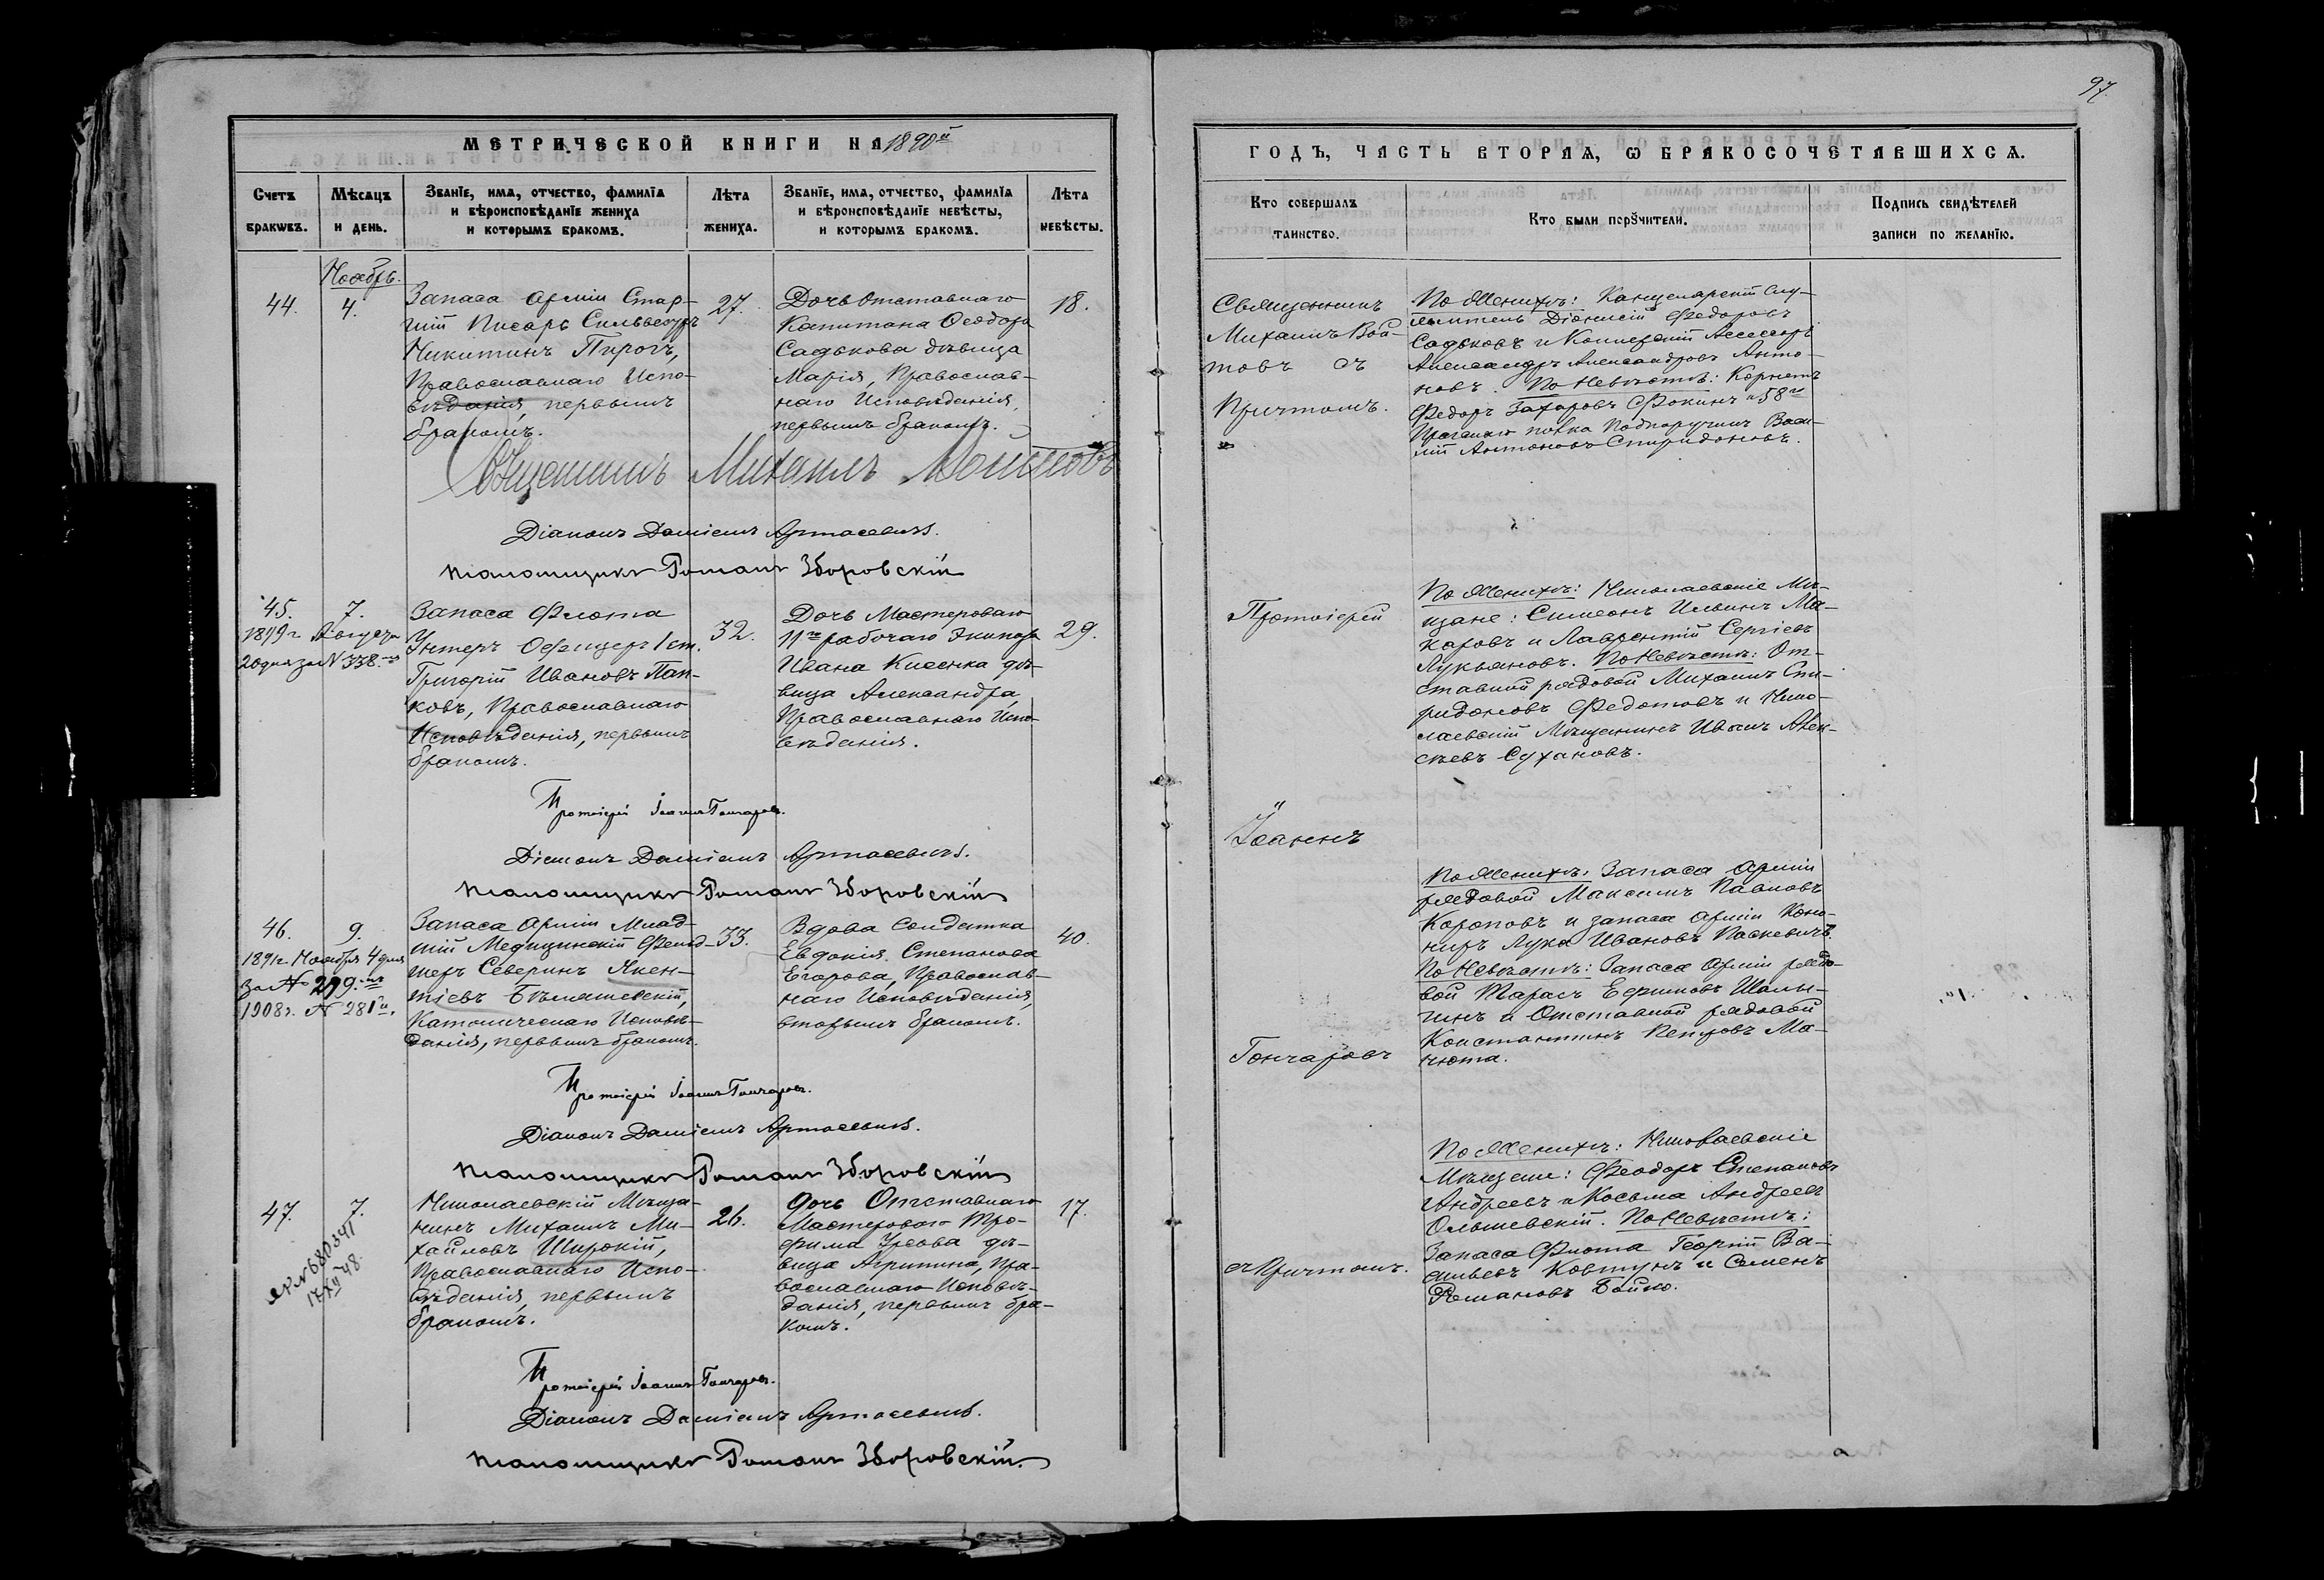 97.
МЕТРИЧЕСКОЙ КНИГИ НА 1890й
ГОДЪ, ЧАСТЬ ВТОРАЯ, Ѡ БРАКОСОЧЕТАВШИХСЯ.
Счетъ браквъ.
Мѣсяцъ и день.
Званїе, имя, отчество, фамилїя
и вѣроисповѣданїе жениха
и которымъ бракомъ.
Лѣта
жениха.
Званїе, имя, отчество, фамилїя
и вѣроисповѣданїе невѣсты,
и которымъ бракомъ.
Лѣта
невѣсты.
Кто совершалъ
таинство.
Кто были порꙋчители.
Подпись свидѣтелей
записи по желанїю.
Ноябрь.
44.
4.
Запаса Арміи Стар-
шій Писарь Сильвестръ
Никитинъ Пирогъ,
Православнаго Испо-
вѣданія, первымъ
бракомъ.
27.
Дочь Отставнаго
Капитана Ѳеодора
Садькова дѣвица
Марія, Православ-
наго Исповѣданія,
первымъ бракомъ.
18.
Священникъ
Михаилъ Вой-
товъ съ
Причтомъ.
По Женихѣ: Канцелярскій Слу-
житель Діонисій Федоровъ
Садьковъ и Коллежскій Ассесоръ
Александръ Александровъ Анто-
новъ. По Невѣстѣ: Корнетъ
Федоръ Захаровъ Фокинъ и 58го
Прагскаго полка Подпоручикъ Васи-
лій Антоновъ Спиридоновъ.
Священникъ Михаилъ Войтовъ
Діаконъ Даміанъ Артасевичъ.
Псаломщикъ Романъ Зборовскій
45.
7.
1899г. Августа
20 дня за № 338.
Запаса Флота
Унтеръ Офицеръ 1 ст.
Григорій Ивановъ Пан-
ковъ, Православнаго
Исповѣданія, первымъ
бракомъ.
32.
Дочь Мастероваго
11го рабочаго экипажа
Ивана Кисенка дѣ-
вица Александра,
Православнаго Испо-
вѣданія.
29.
Протоіерей
По Женихѣ: Николаевскіе Мѣ-
щане: Симеонъ Ильинъ Ма-
каровъ и Лаврентій Сергіевъ
Лукьяновъ. По Невѣстѣ: От-
ставной рядовой Михаилъ Спи-
ридоновъ Федотовъ и Нико-
лаевскій Мѣщанинъ Иванъ Алек-
сѣевъ Сухановъ.
Протоіерей Іоаннъ Гончаровъ.
Діаконъ Даміанъ Артасевичъ.
Псаломщикъ Романъ Зборовскій
Іоаннъ
46.
9.
1891г. Ноября 4 дня
за № 299.
1908г. № 281й.
Запаса Арміи Млад-
шій Медицинскій Фельд-
шеръ Северинъ Якен-
тіевъ Бѣляшевскій,
Католическаго Исповѣ-
данія, первымъ бракомъ.
33.
Вдова Солдатка
Евдокія Степанова
Егорова, Православ-
наго Исповѣданія,
вторымъ бракомъ.
40.
Гончаровъ
По Женихѣ: Запаса Арміи
рядовой Максимъ Павловъ
Короповъ и запаса Арміи Кано-
ниръ Лука Ивановъ Паскевичъ.
По Невѣстѣ: Запаса Арміи рядо-
вой Тарасъ Ефимовъ Шалы-
гинъ и Отставной рядовой
Константинъ Петровъ Ма-
нюта.
Протоіерей Іоаннъ Гончаровъ.
Діаконъ Даміанъ Артасевичъ.
Псаломщикъ Романъ Зборовскій
47.
7.
ЯР № 680341
17/XII 48.
Николаевскій Мѣща-
нинъ Михаилъ Ми-
хайловъ Широкій,
Православнаго Испо-
вѣданія, первымъ
бракомъ.
26.
Дочь Отставнаго
Мастероваго Тро-
фима Усова дѣ-
вица Агрипина, Пра-
вославнаго Исповѣ-
данія, первымъ бра-
комъ.
17.
съ Причтомъ.
По Женихѣ: Николаевскіе
Мѣщане: Феодоръ Степановъ
Андреевъ и Косьма Андреевъ
Ольшевскій. По Невѣстѣ:
Запаса Флота Георгій Ва-
сильевъ Ковтунъ и Семенъ
Романовъ Бойко.
Протоіерей Іоаннъ Гончаровъ.
Діаконъ Даміанъ Артасевичъ.
Псаломщикъ Романъ Зборовскій.